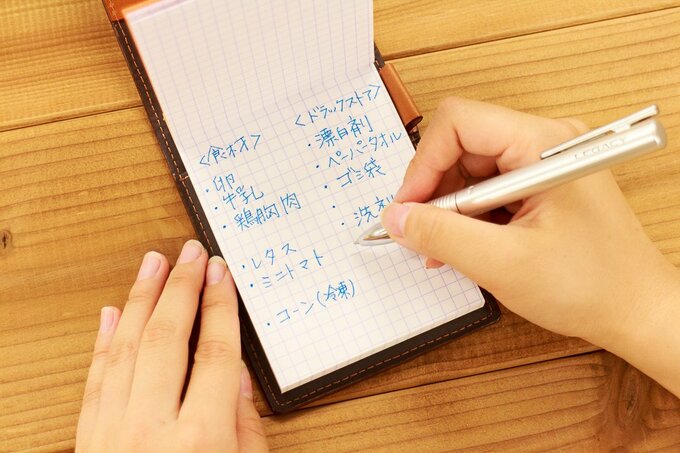 <食材>
・卵
・牛乳
・鶏胸肉
・レタス
・ミニトマト
・コーン(冷凍)
<ドラックストア>
・漂白剤
・ペーパータオル
・ゴミ袋
LEGACY